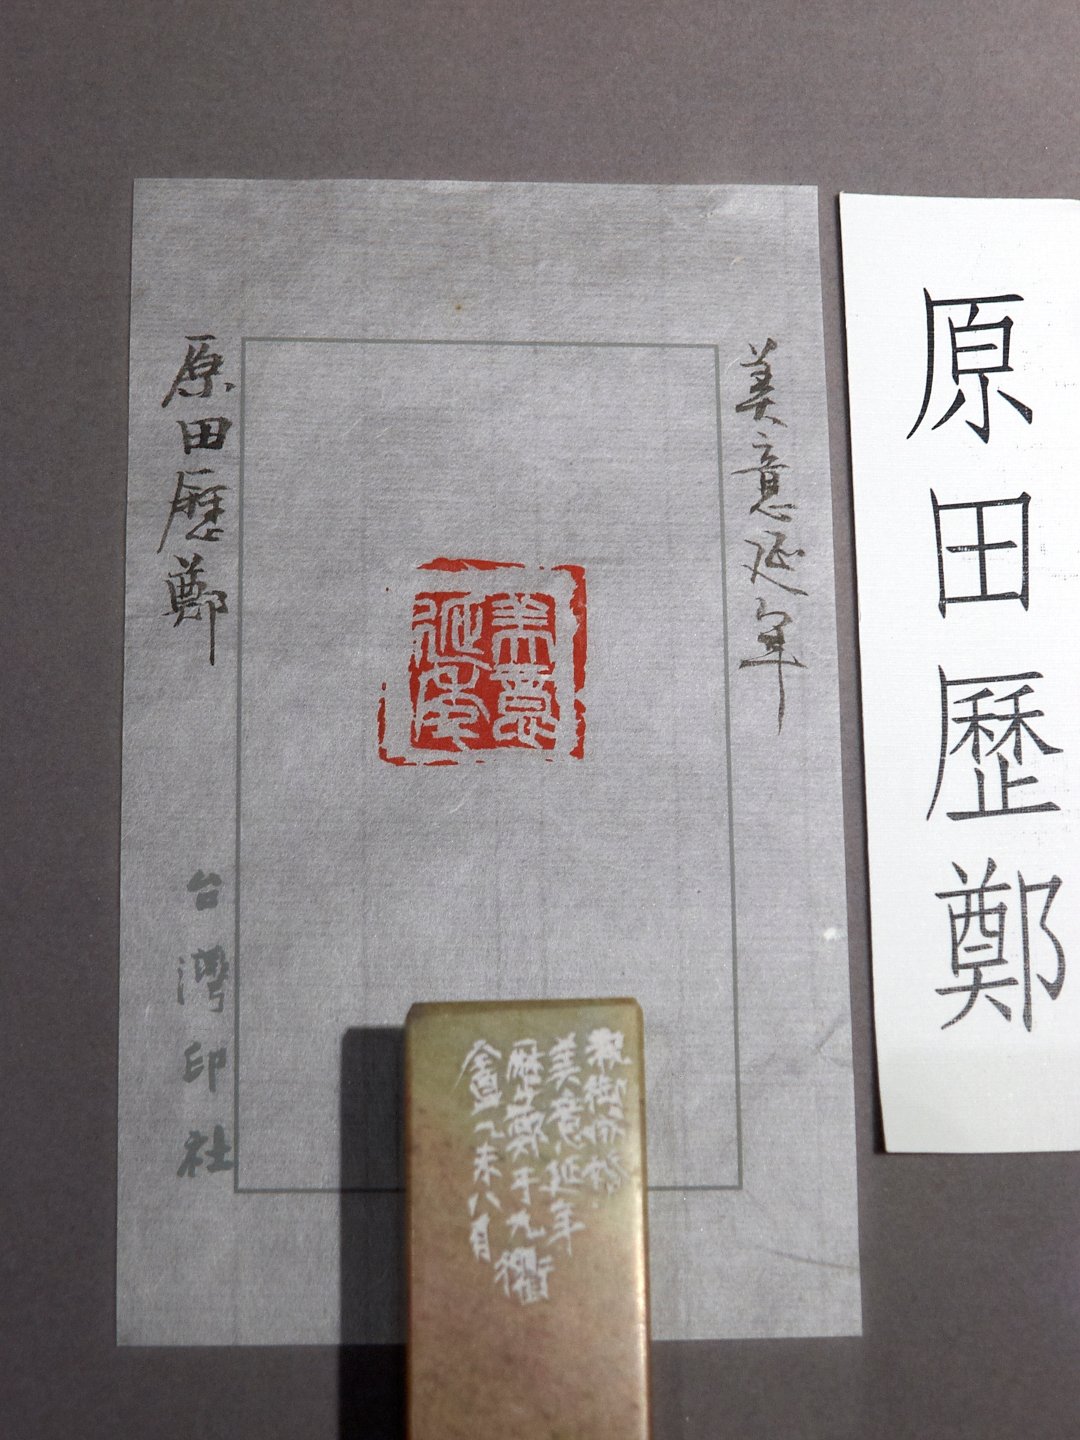 原田歷鄭
美意延年
美意延年
原田歷鄭
台灣印社
美意延年
歷鄭于九衢
八月